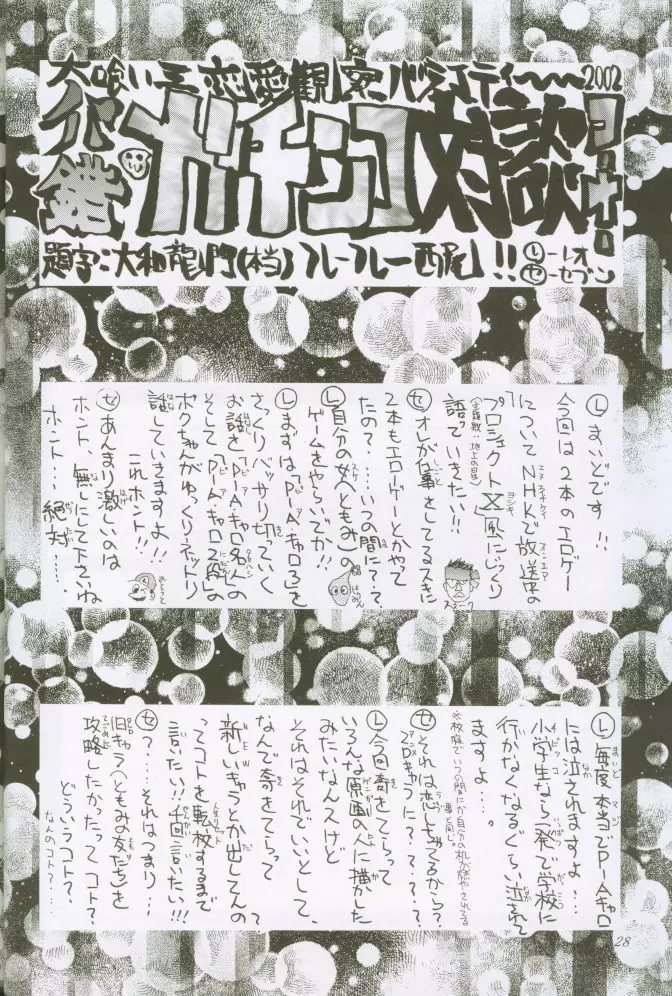 大喰い王恋愛観察バラエティー〜〜2002
ガチンコ対談
コーナー
題字:大和龍門(本当)フレーフレー西尾!!
Ⓛーレオ
㋝ーセブン
Ⓛまいどです!!
今回は2本のエロゲー
についてNHKで放送中の
プロジェクトX風にじっくり
(主題歌・地上の星)
語っていきたい!!
スターク
㋝オレが仕事をしてるスキに
2本もエローゲーとかやって
たの?...いつの間に?・?
Ⓛ自分の女(ともみ)の
ゲームをやらいでか!!
Ⓛまずは、「Pi・Aキャロ3」を
さっくりバッサリ切っていく
お話を「Pi・Aキャロ名人」の
そして「Pi・Aキャロ2」の
ボクちゃんがゆっくりネットリ
話していきますよ!!
これホント!!
㋝あんまり激しいのは
ホント、無しにして下さいね
ホント...絶対...
おとうと
Ⓛ毎度本当でPi・Aキャロ
には泣されますよ...
小学生なら一発で学校に
行かなくなるぐらい泣されて
ますよ...。
※校庭でいつの間にか自分の机が燃やされてる
事と同じ。
㋝それは恋しちゃてるから?
アニロきゅうに?・?・?・?
Ⓛ今回奇をてらって
いろんな原画の人に描かした
みたいなんスけど
それはそれでいいとして、
なんで奇をてらって?
新しいきゅうとか出してんの
ってコトを転校するまで
言いたい!!千回言いたい!!!
㋝?....それはつまり...
旧きゅう(ともみの友だち)を
攻略したかたってコト?
どういうコト?
なんのコト?...
28